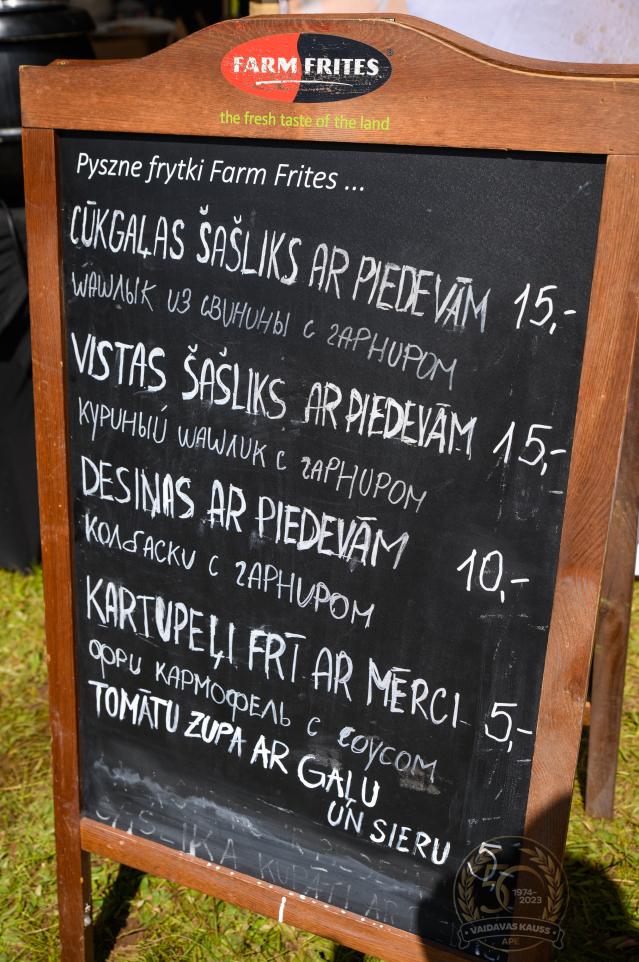 FARM FRITES
the fresh taste of the land
Pyszne frytki Farm Frites ...
CŪKGAĻAS ŠAŠLIKS AR PIEDEVĀM 15,-
ШАШЛЫК ИЗ СВИНИНЫ С ГАРНИРОМ
VISTAS ŠAŠLIKS AR PIEDEVĀM 15,-
КУРИНЫЙ ШАШЛИК С ГАРНИРОМ
DESIŅAS AR PIEDEVĀM 10,-
КОЛБАСКИ С ГАРНИРОМ
KARTUPEĻI FRĪ AR MĒRCI 5,-
ФРИ КАРМОФЕЛЬ С СОУСОМ
TOMĀTU ZUPA AR GAĻU
UN SIERU 5,-
30 1974-
2023
VAIDAVAS KAUSS
APE